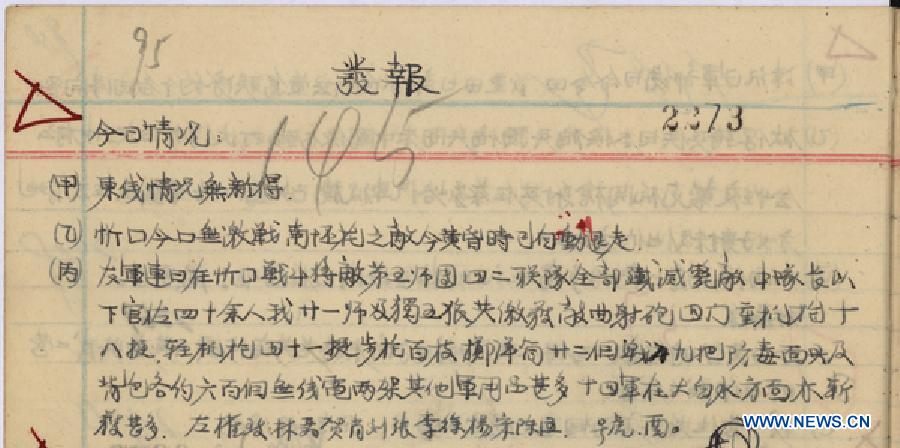 95
發報
2273
145
今日情况:
(甲) 東线情况無新得.
(乙) 忻口今日無激戰南怀花之敵今黄昏時已向動退走
(丙) 友軍連日在忻口戰斗将敵第五师团四二联隊全部殲滅斃敵中隊長以
下官佐四十余人我廿一师及獨五旅共缴获敵曲射砲四门重机枪十
八挺轻机枪四十一挺步枪百枝擲弹筒廿二個戰刀九把防毒面具及
背包各约六百個無线電两架其他軍用品甚多十四軍在大白水方面亦斩
獲甚多 左權 林聂贺肖刘张李徐楊宋陈
WWW.NEWS.CN